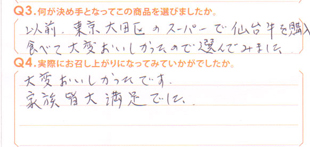 Q3.何が決め手となってこの商品を選びましたか。
以前、東京大田区のスーパーで仙台牛を購入
食べて大変おいしかったので選んでみました
Q4.実際にお召し上がりになってみていかがでしたか。
大変おいしかったです。
家族皆大満足でした。